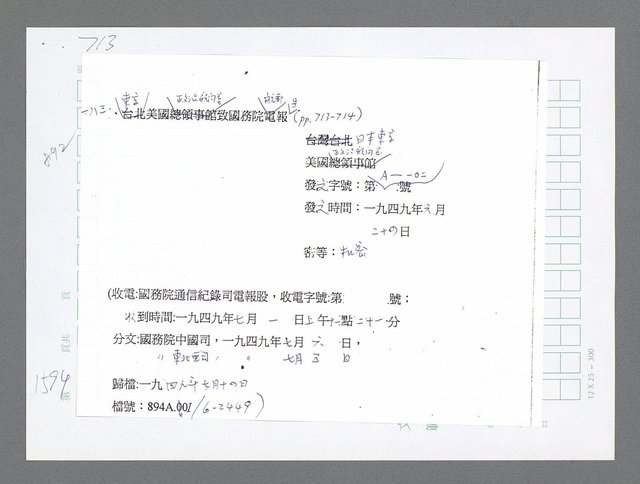 713
東京 政治顧問室 航郵
一八三、台北美國總領事館致國務院電報(pp.713-714)
台灣台北日本東京
政治顧問室
美國總領事館
A一一0二
發文字號：第 號
發文時間：一九四九年六月
二十四日
892
密等：機密
(收電:國務院通信紀錄司電報股，收電字號:第 號；
收到時間:一九四九年七月 一 日上午十一點二十一分
分文:國務院中國司，一九四九年七月 六 日，
〃 東北亞司， 〃 七月 三 日
頁
頁共
1594
第
歸檔:一九四九年七月十四日
檔號：894A.001/6-2449)
12 X 25 - 300